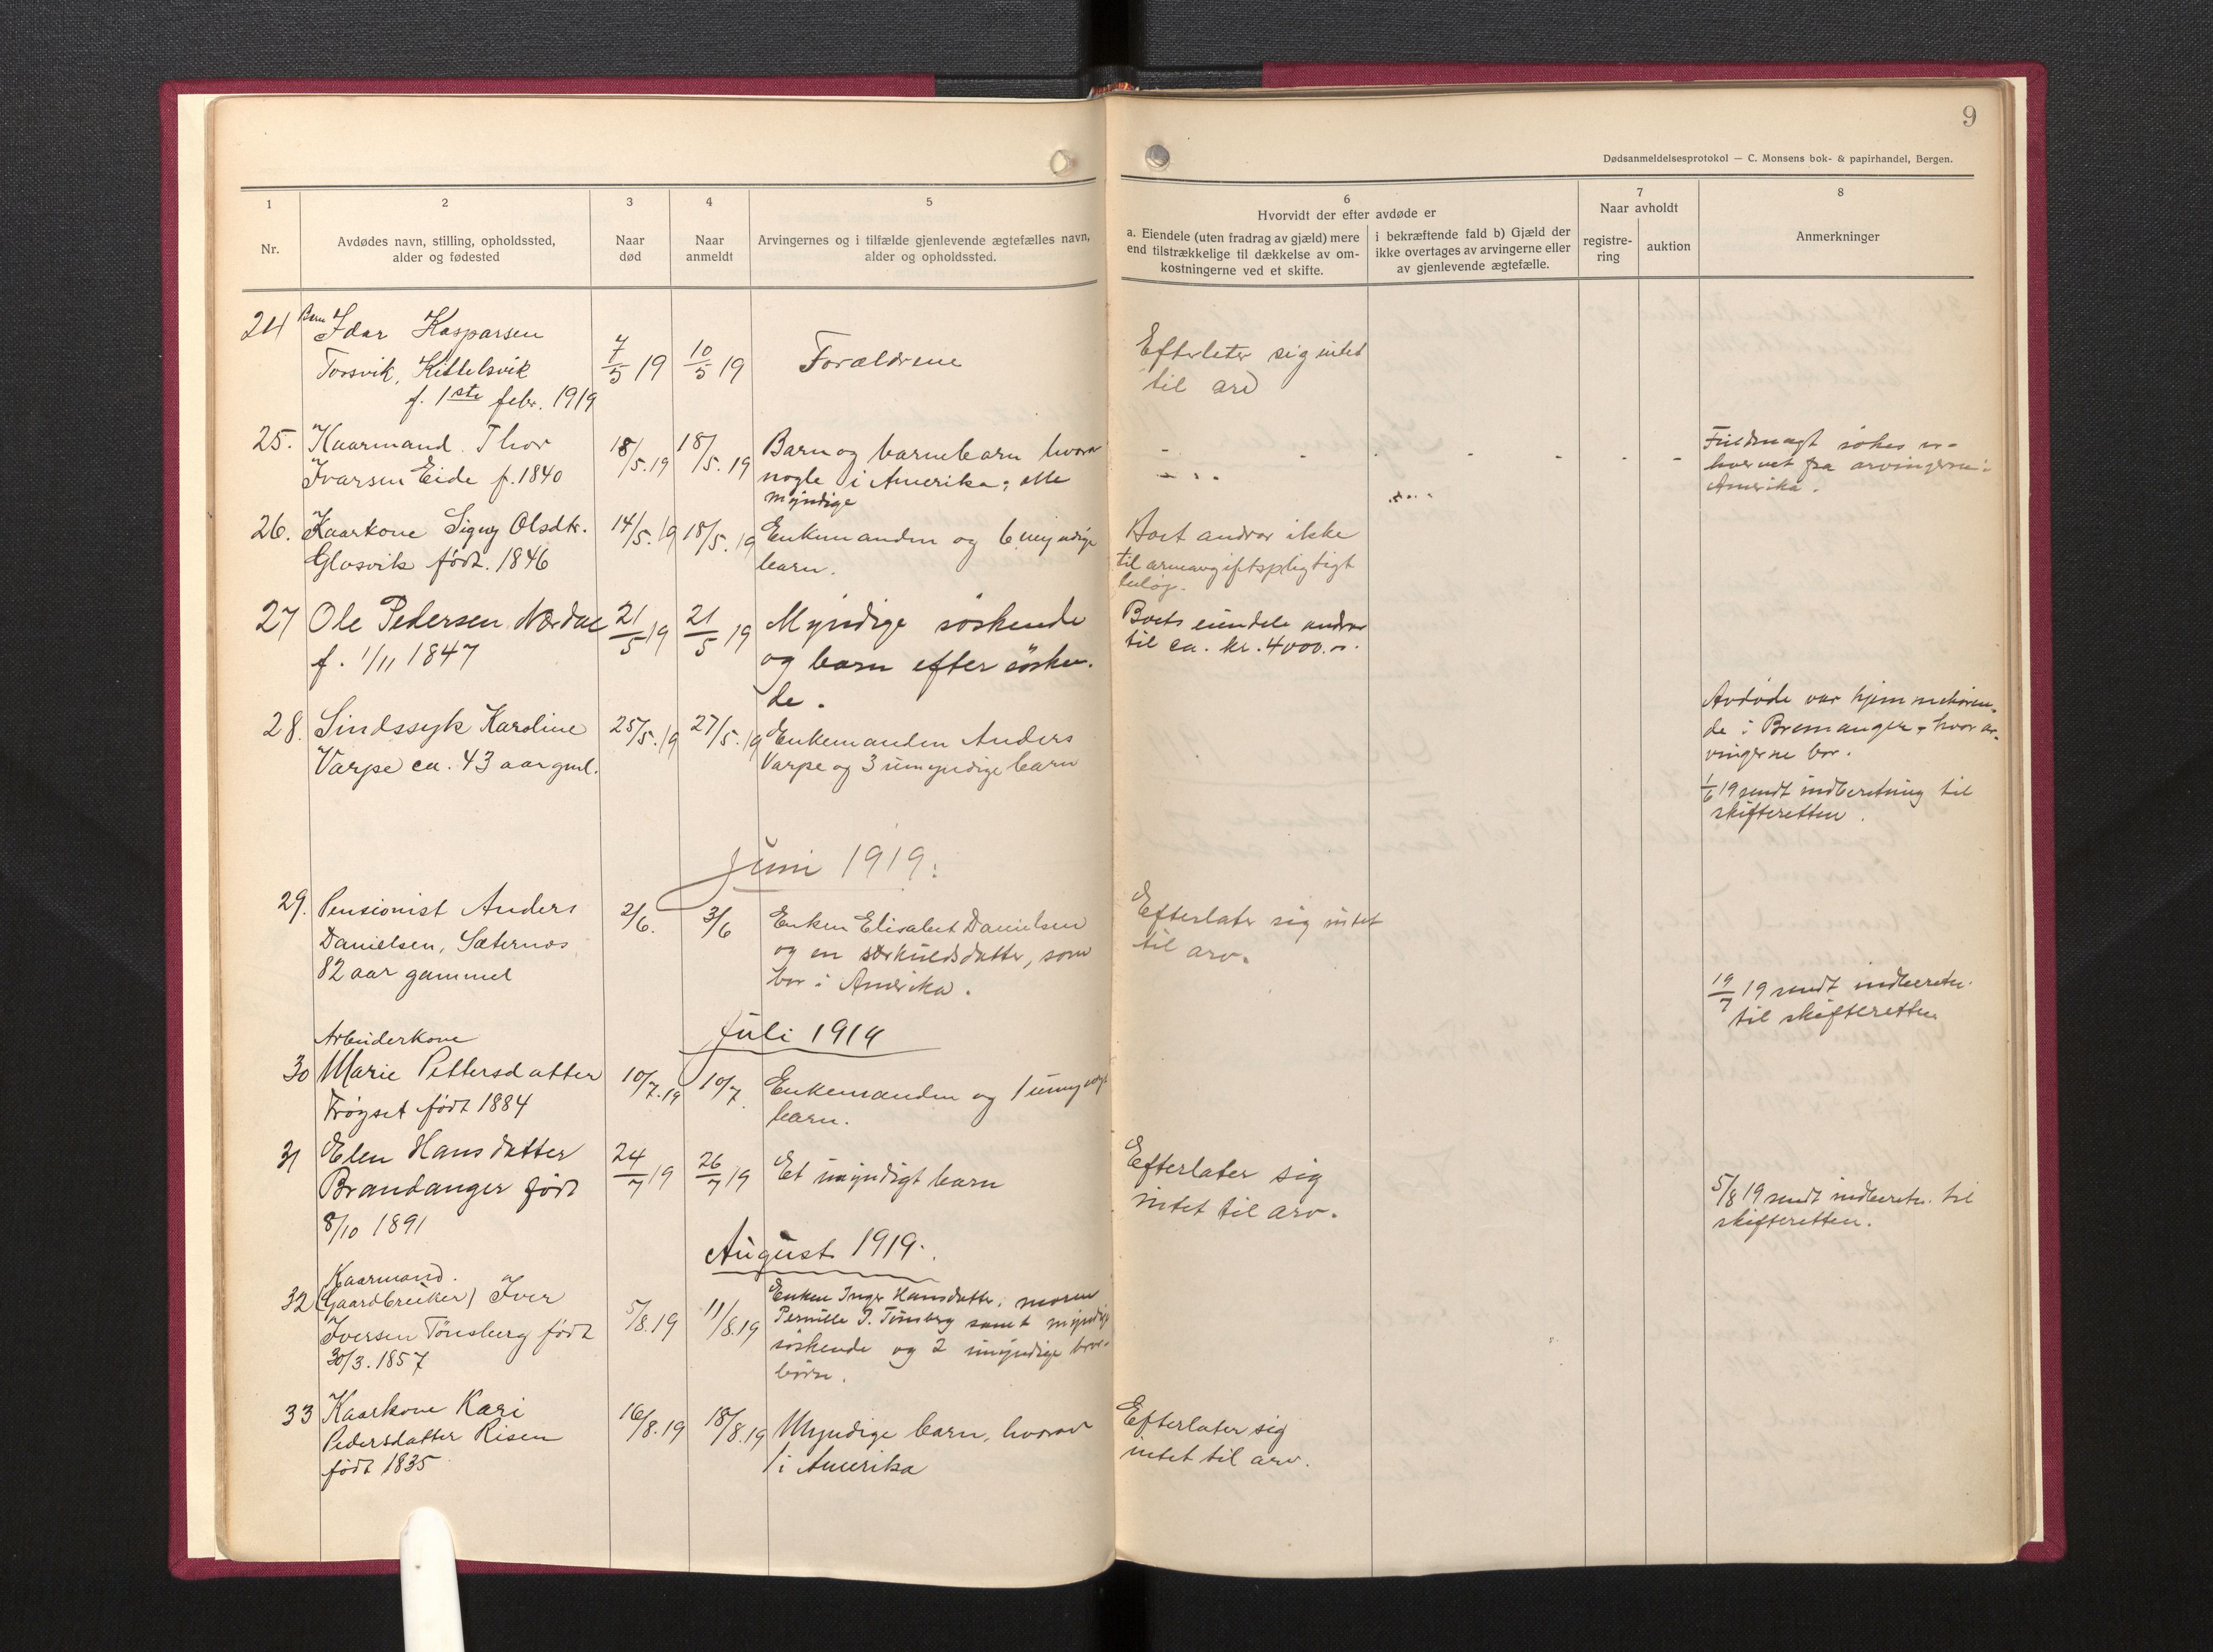 9
Dødsanmeldelsesprotokol — C. Monsens bok- & papirhandel, Bergen.
1
2
3
4
5
6
7
8
Nr.
Avdødes navn, stilling, opholdssted,
alder og fødested
Naar
død
Naar
anmeldt
Arvingernes og i tilfælde gjenlevende ægtefælles navn,
alder og opholdssted.
Hvorvidt der efter avdøde er
a. Eiendele (uten fradrag av gjæld) mere
end tilstrækkelige til dækkelse av om-
kostningerne ved et skifte.
i bekræftende fald b) Gjæld der
ikke overtages av arvingerne eller
av gjenlevende ægtefælle.
Naar avholdt
registre-
ring
auktion
Anmerkninger
24 Barn Idar Kasparsen
Torsvik, Kittelsvik
f. 1ste febr. 1919
7/5 19
10/5 19
Forældrene
Efterleter sig intet
til arv
25. Kaarmand Thor
Ivarsen Eide f. 1840
18/5. 19
18/5. 19
Barn og barnebarn hvorav
nogle i Amerika; alle
myndige
Fuldmagt søkes er-
hvervet fra arvingerne i
Amerika.
26. Kaarkone Signy Olsdtr.
Glosvik født. 1846
14/5. 19
18/5. 19
Enkemanden og 6 myndige
barn.
Boet andrar ikke
til arveavgiftspligtigt
beløp.
27 Ole Pedersen Nordal
f. 1/11 1847
21/5 19
21/5 19
Myndige søskende
og barn efter søsken-
de.
Boets eiendele andrar
til ca. kr. 4000.-.
28. Sindssyk Karoline
Varpe ca. 43 aar gml.
25/5. 19
27/5. 19
Enkemanden Anders
Varpe og 3 umyndige barn
Avdøde var hjemmehøren-
de i Bremanger, hvor ar-
vingerne bor.
1/6 19 sendt indberetning til
skifteretten.
Juni 1919.
29. Pensionist Anders
Danielsen, Sæternes
82 aar gammel
2/6.
3/6
Enken Elisabet Danielsen
og en særkuldsdatter, som
bor i Amerika.
Efterlater sig intet
til arv.
19/7 19 sendt indberetn.
til skifteretten
Juli 1919
Arbeiderkone
30 Marie Pettersdatter
Frøyset født 1884
10/7. 19
10/7.
Enkemanden og 1 umyndig
barn.
31 Elen Hansdatter
Brandanger født
8/10 1891
24/7 19
26/7 19
Et umyndigt barn
Efterlater sig
intet til arv.
5/8 19 sendt indberetn. til
skifteretten.
August 1919.
Kaarmand.
32 (Gaardbruker) Iver
Iversen Tønsberg født
30/3. 1857
5/8. 19
11/8. 19
Enken Inger Hansdatter, moren
Pernille I. Tønsberg samt myndige
søskende og 2 umyndige bror-
børn.
33 Kaarkone Kari
Pedersdatter Risen
født 1835
16/8. 19
18/8. 19
Myndige barn, hvorav
1 i Amerika
Efterlater sig
intet til arv.